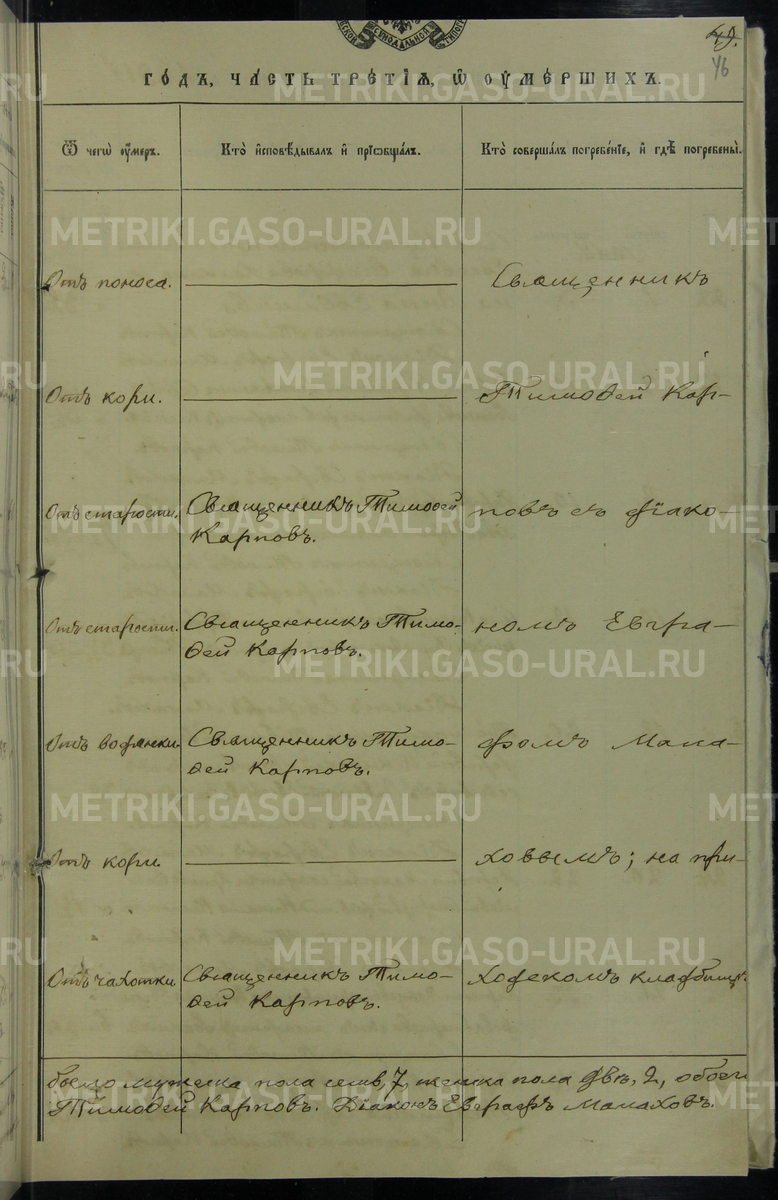 49.
46
СѴНОДАЛЬНОЙ
ГОДЪ, ЧАСТЬ ТРЕТІѦ, Ѿ ОУМЕРШИХЪ.
Ѿ чегѡ оумеръ.
Кто исповѣдывалъ и пріѡбщалъ.
Кто совершалъ погребеніе, и гдѣ погребены.
METRIKI.GASO-URAL.RU
Отъ поноса.
Священникъ
Отъ кори.
Тимоѳей Кар-
Отъ старости.
Священникъ Тимоѳей
Карповъ.
повъ съ діако-
Отъ старости.
Священникъ Тимо-
ѳей Карповъ.
номъ Евгра-
Отъ водянки.
Священникъ Тимо-
ѳей Карповъ.
фомъ Мала-
Отъ кори.
ховымъ; на при-
Отъ чахотки.
Священникъ Тимо-
ѳей Карповъ.
ходскомъ кладбищѣ.
было мужеска пола семь, 7, женска пола двѣ, 2, обоего
Тимоѳей Карповъ. Діаконъ Евграфъ Малаховъ.